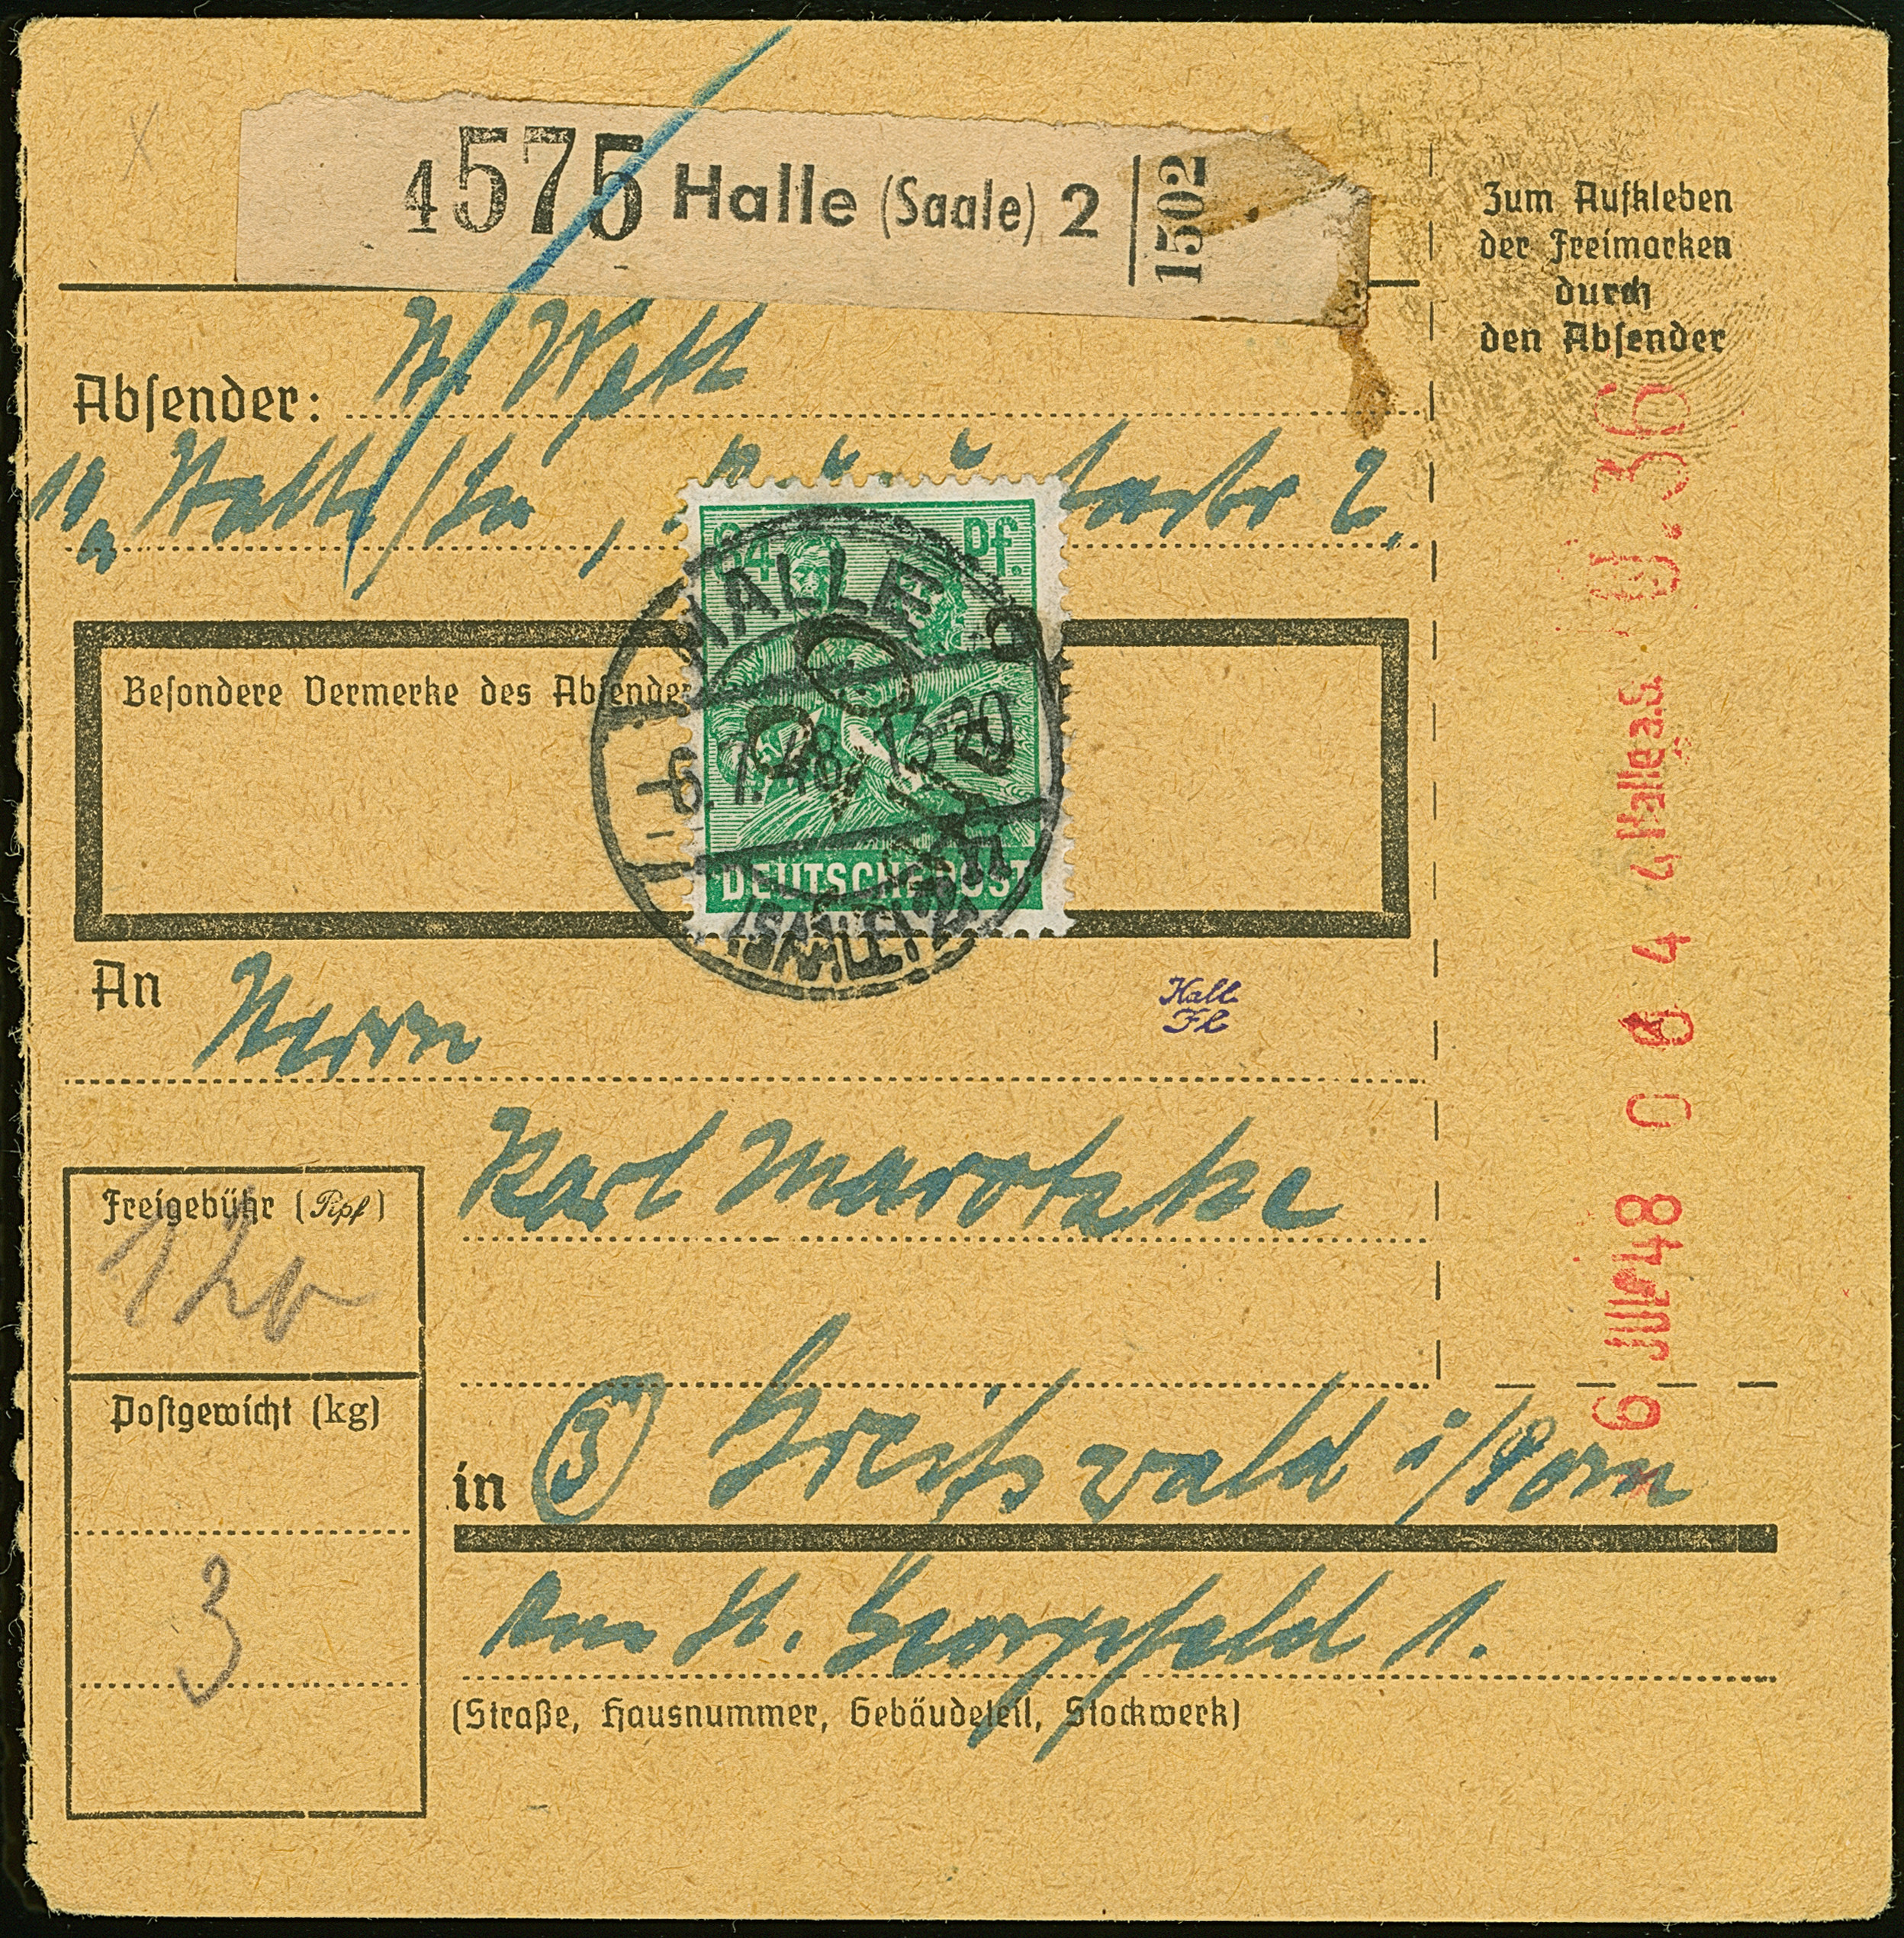 4575 Halle (Saale) 2 1502
Zum Aufkleben
der Freimarken
durch
den Absender
Absender:
Halle 2.
84 Pf.
DEUTSCHE POST
HALLE
6.7.48
(SAALE) 2
Besondere Vermerke des Absender
An Herrn
Hall
Fl
Karl Marotzke
Freigebühr (Rpf)
120
Postgewicht (kg)
3
in (3) Greifswald i/Pom
Am St. Georgsfeld 1.
(Straße, Hausnummer, Gebäudeteil, Stockwerk)
6 Juli 48 0 6 4 4 Halle a.S. 0.36